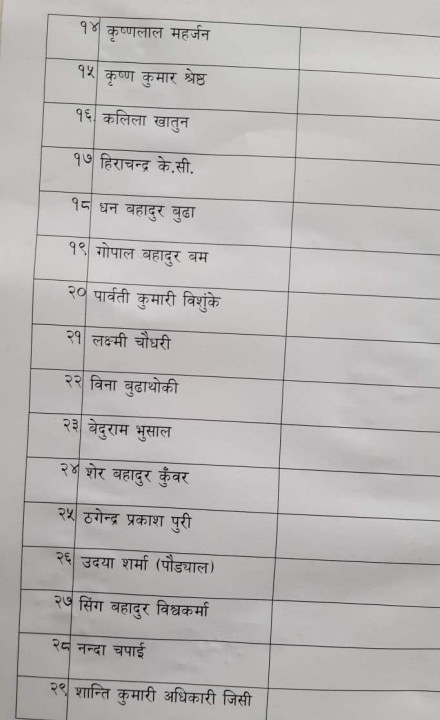 १४ कृष्णलाल महर्जन
१५ कृष्ण कुमार श्रेष्ठ
१६ कलिला खातुन
१७ हिराचन्द्र के.सी.
१८ धन बहादुर बुढा
१९ गोपाल बहादुर बम
२० पार्वती कुमारी विशुंके
२१ लक्ष्मी चौधरी
२२ विना बुढाथोकी
२३ बेदुराम भुसाल
२४ शेर बहादुर कुँवर
२५ ठगेन्द्र प्रकाश पुरी
२६ उदया शर्मा (पौड्याल)
२७ सिंग बहादुर विश्वकर्मा
२८ नन्दा चपाई
२९ शान्ति कुमारी अधिकारी जिसी